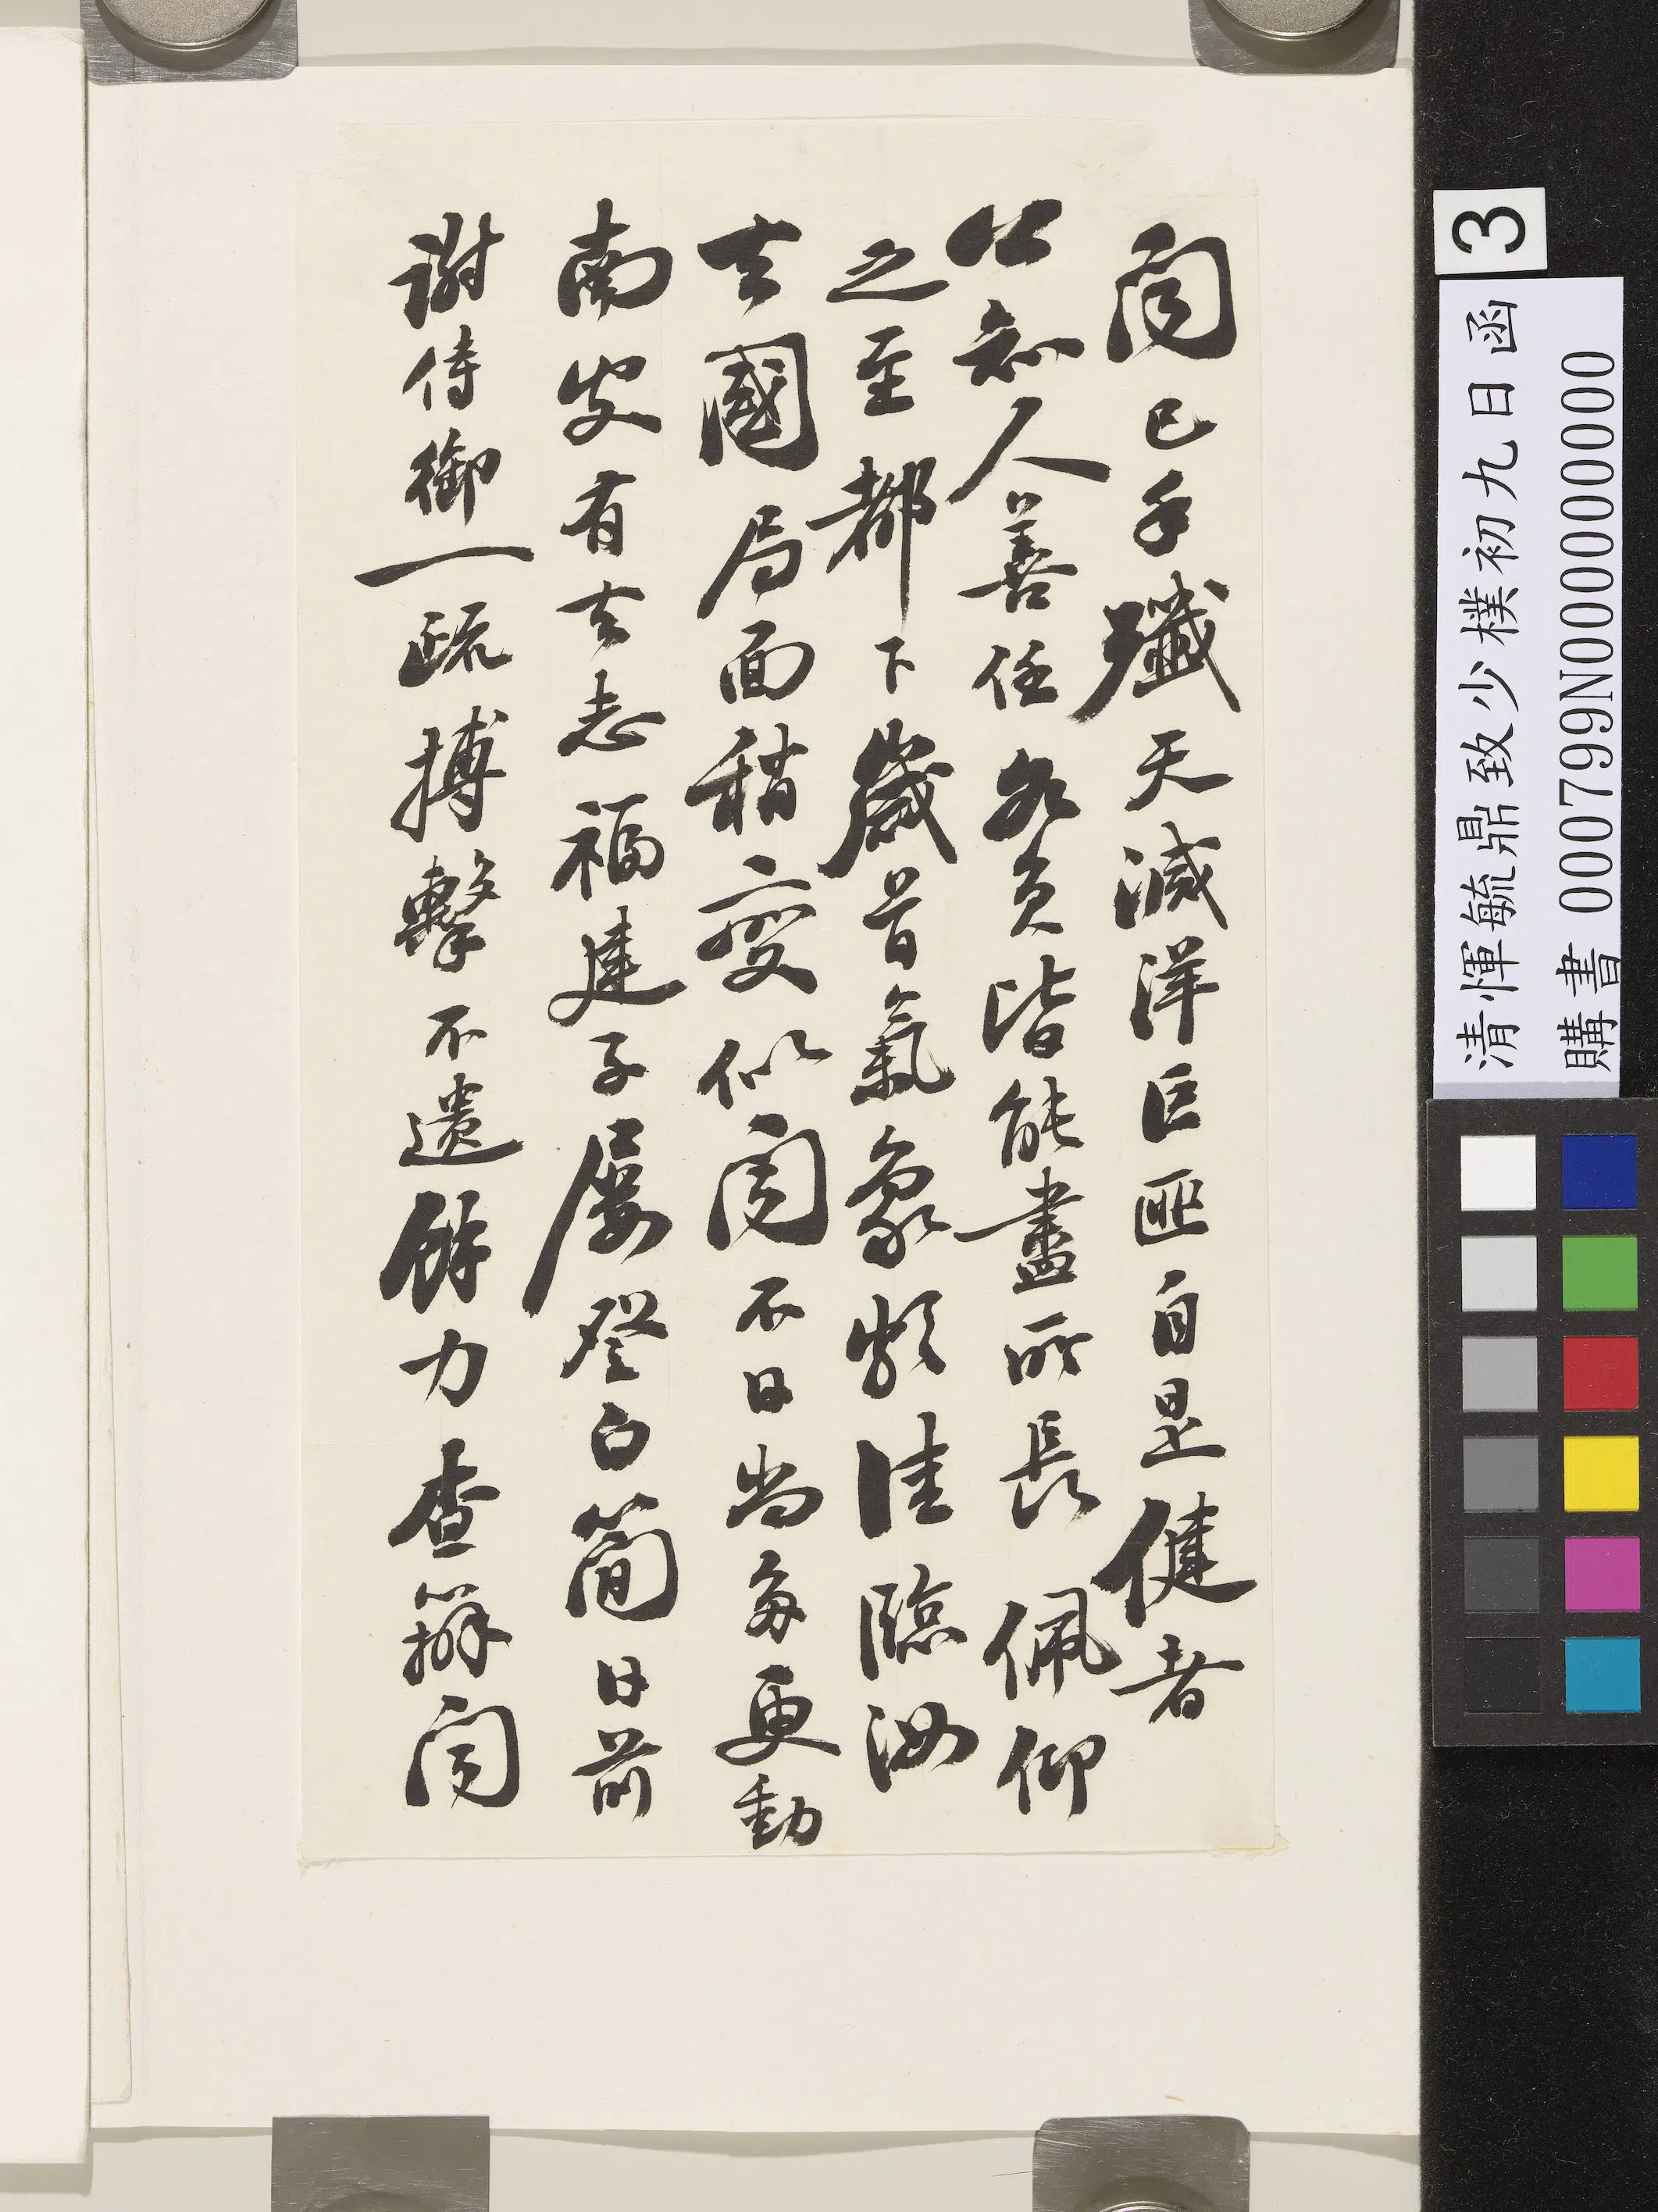 聞已手殲天滅洋巨匪自是健者
公知人善任各員皆能盡所長佩仰
之至都下歲首氣象頗佳臨汝
去國局面稍變似聞不日尚多更動
南皮有去志福建子屢登白簡日前
謝侍御一疏搏擊不遺餘力查辦聞
3
清惲毓鼎致少樸初九日函
購書 000799N000000000